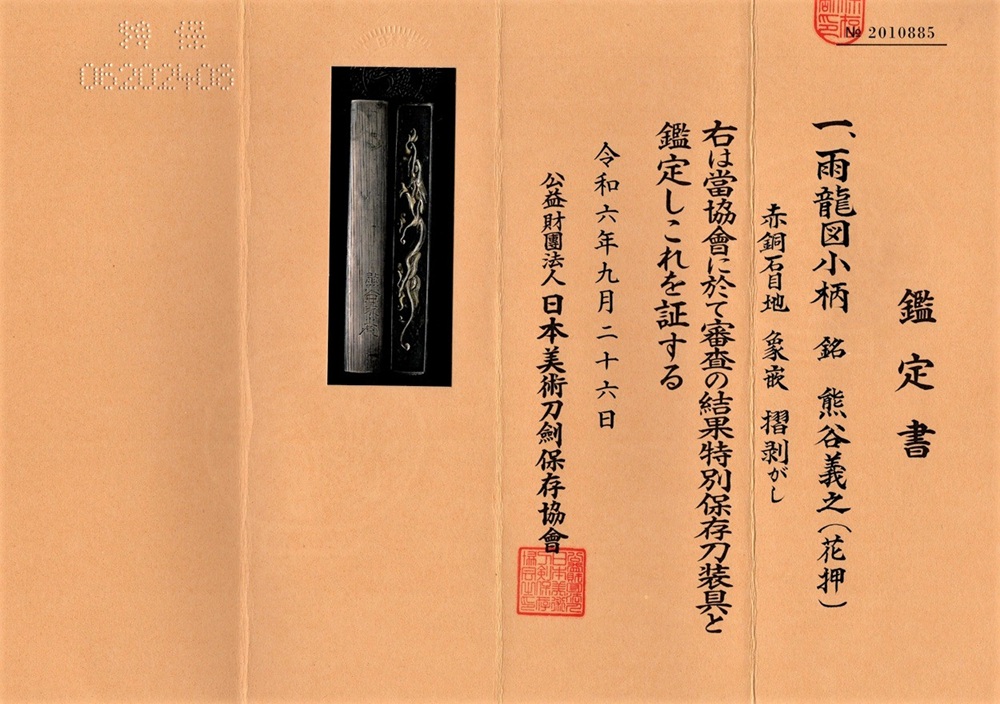 № 2010885
鑑定書
一、雨龍図小柄 銘 熊谷義之(花押)
赤銅石目地 象嵌 摺剥がし
右は當協會に於て審査の結果特別保存刀装具と
鑑定しこれを証する
令和六年九月二十六日
公益財團法人 日本美術刀劍保存協會
特保
06202408